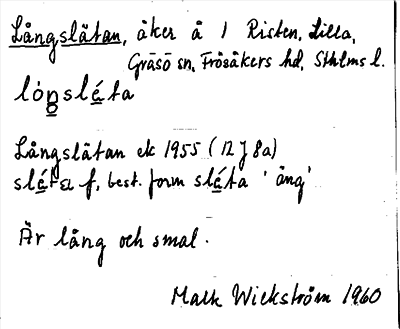 Långslätan, åker å 1 Risten, Lilla,
Gräsö sn, Frösåkers hd, Sthlms l.
lóŋsléta
Långslätan ek 1955 (12 J 8a)
slétɛ f, best. form sléta 'äng'
Är lång och smal.
Maik Wickström 1960